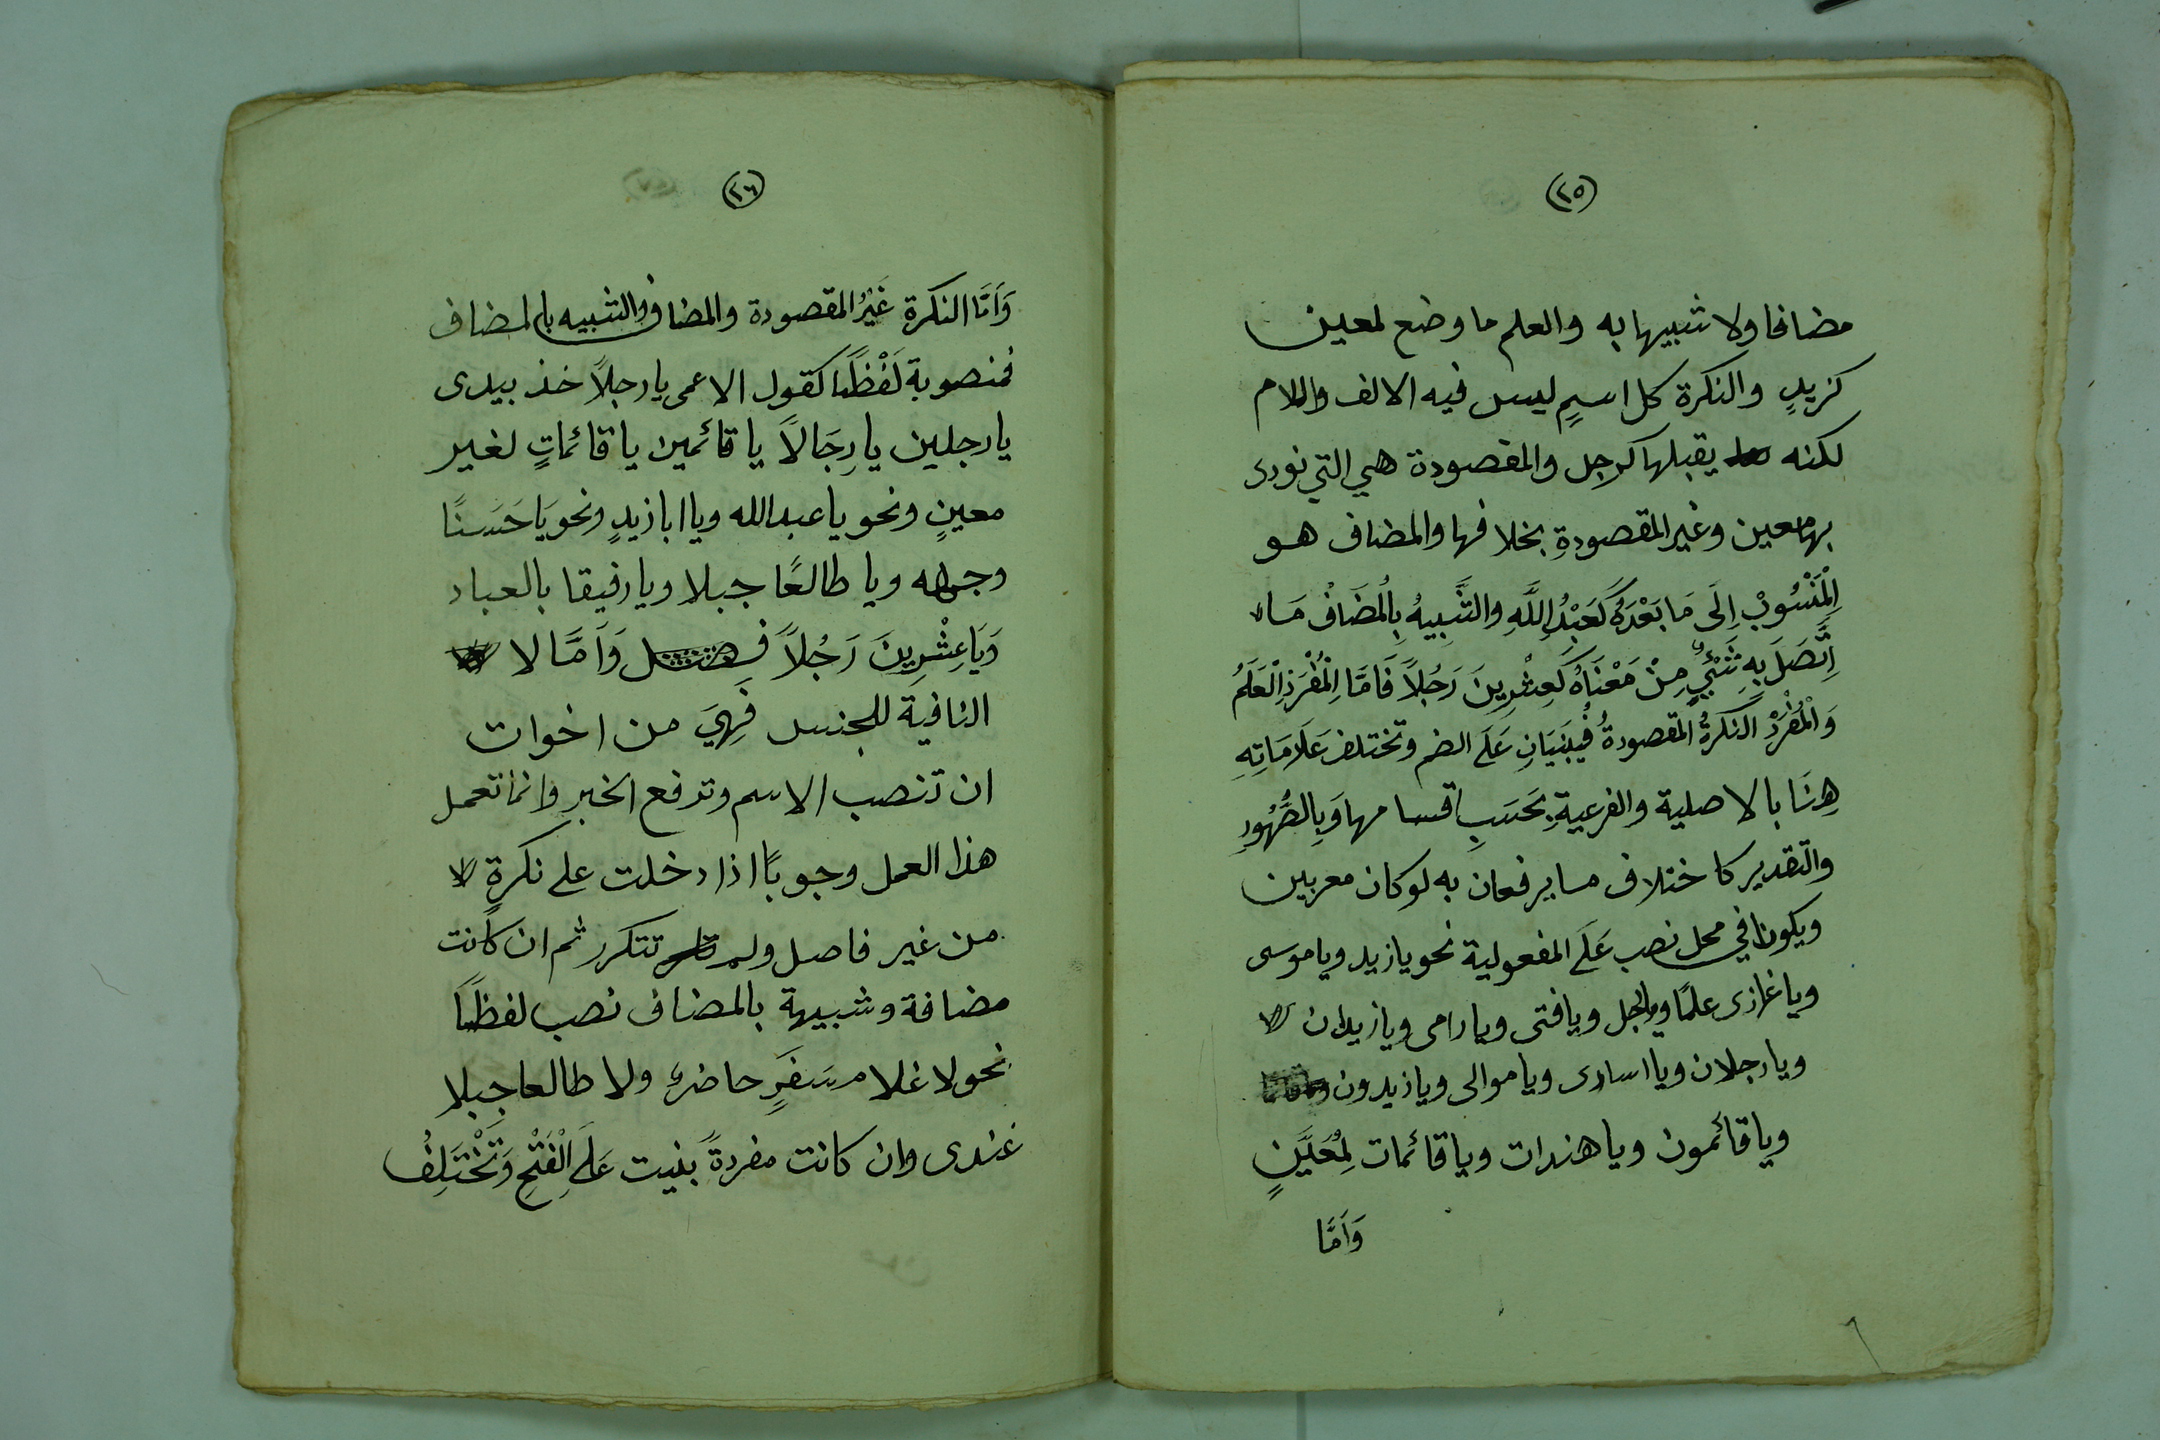 (٢٥)
مضافا ولا شبيها به والعلم ما وضع لمعين
كزيدٍ والنكرة كل اسمٍ ليس فيه الالف واللام
لكنه يقبلها كرجل والمقصودة هي التي نودى
بها معين وغير المقصودةِ بخلافها والمضاف هو
اِلْمَنْسُوبْ اِلَى مَا بَعْدَهُ كَعَبْدُ اِللَّهِ والشَّبِيهُ بِالْمُضَافْ مَا
اِتَّصَلَ بِهِ شَيْءٌ مِنْ مَعْنَاهُ كَعِشْرِينَ رَجُلاً فَامَّا اِلْمُفْرَدْ اِلْعَلَمُ
وَالْمُفْرَدْ النكرةُ المقصودةُ فَيُبنَيَانِ عَلَى الضم وتختلف عَلَامَاتِهِ
هِنَا بالاصلية والفرعيةِ بَحَسَبِ اقسامها وَبِالظُّهُورِ
والتقدير كاختلاف ما يرفعان به لو كان معربين
ويكونا في محل نصب عَلَى المفعولية نحو يازيد وياموسى
وياغازى علمًا ويارجل ويافتى ويارامى ويازيدان
ويارجلان ويااسارى وياموالى ويازيدون
وياقائمون وياهندات وياقائمات لِمُعَيَّنٍ
وَاَمَّا
(٢٦)
وَاَمَّا النكرة غَيْرُ المقصودة والمضاف والشبيه بالمضاف
فمنصوبة لَفْظًا كقول الاعمى يارجلاً خذ بيدى
يارجلين يارِجَالاً ياقائمين ياقائماتٍ لغير
معينٍ ونحو ياعبدالله ويا ابازيدٍ ونحو يَاحَسَنًا
وجهه وياطالعًا جبلا ويارفيقا بالعباد
وَيَاعِشْرِينَ رَجُلاً فصل وَاَمَّا لا
النافية للجنس فَهِيَ من اخوات
ان تنصب الاسم وترفع الخبر وانما تعمل
هذا العمل وجوبًا اذا دخلت على نكرةٍ
من غير فاصل ولم تتكرر ثم ان كانت
مضافة وشبيهة بالمضاف نصب لفظًا
نحو لا غلام سَفَرٍ حاضرٌ ولا طالعا جبلا
عندى وان كانت مفردةً بنيت عَلَى اِلْفَتْحِ وَتَخْتَلِفُ